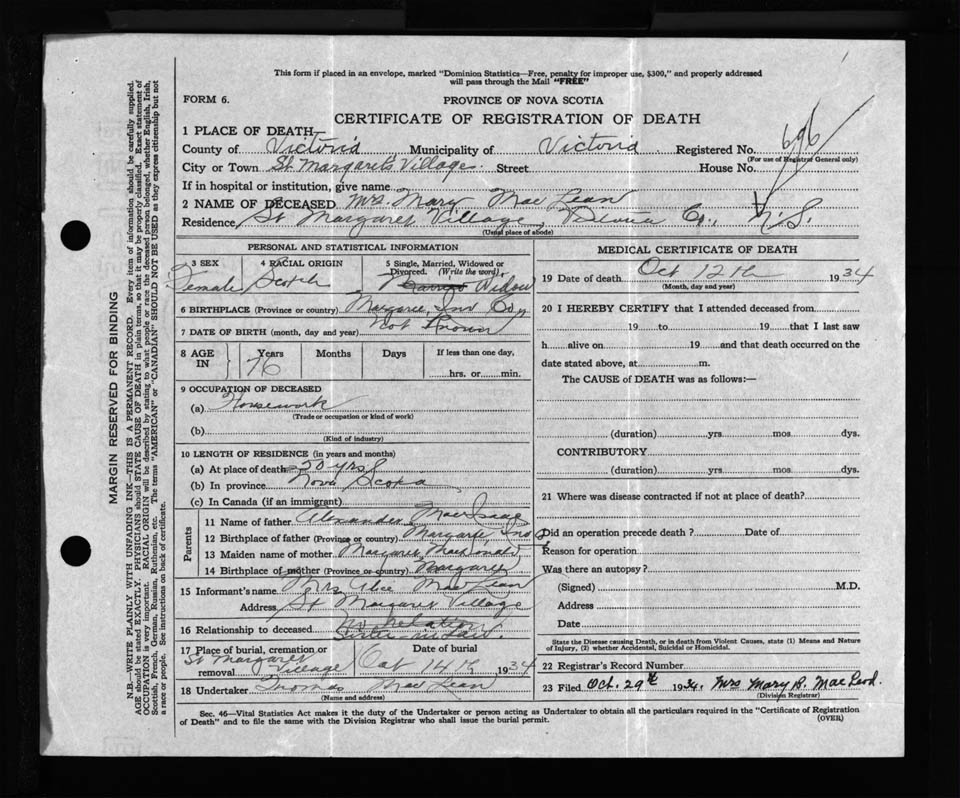 This form if placed in an envelope, marked "Dominion Statistics—Free, penalty for improper use, $300," and properly addressed
will pass through the Mail "FREE"
FORM 6.
PROVINCE OF NOVA SCOTIA
CERTIFICATE OF REGISTRATION OF DEATH
1 PLACE OF DEATH—
County of Victoria Municipality of Victoria Registered No. 696
(For use of Registrar General only)
City or Town St Margarets Village Street House No.
If in hospital or institution, give name
2 NAME OF DECEASED Mrs. Mary Mac Lean
Residence St Margaret Village, Victoria Co., N.S.
(Usual place of abode)
PERSONAL AND STATISTICAL INFORMATION
3 SEX 4 RACIAL ORIGIN 5 Single, Married, Widowed or Divorced. (Write the word)
Female Scotch Married Widow
6 BIRTHPLACE (Province or country) Margaree, Inv Co,
7 DATE OF BIRTH (month, day and year) Not Known
8 AGE IN Years Months Days If less than one day,
76 hrs. or min.
9 OCCUPATION OF DECEASED
(a) Housework
(Trade or occupation or kind of work)
(b)
(Kind of industry)
10 LENGTH OF RESIDENCE (in years and months)
(a) At place of death 50 yrs
(b) In province Nova Scotia
(c) In Canada (if an immigrant)
Parents
11 Name of father Alexander MacIsaac
12 Birthplace of father (Province or country) Margaree Inv Co
13 Maiden name of mother Margaret MacDonald
14 Birthplace of mother (Province or country) Margaree
15 Informant's name Mrs Alex MacLean
Address St Margaret Village
16 Relationship to deceased No Relation
Sister-in-Law
17 Place of burial, cremation or removal Date of burial
St Margaret Village Oct 14 th 1934
18 Undertaker Thomas MacLean
(Name and address)
MEDICAL CERTIFICATE OF DEATH
19 Date of death Oct 12 th 1934
(Month, day and year)
20 I HEREBY CERTIFY that I attended deceased from
19 to 19 that I last saw
h alive on 19 and that death occurred on the
date stated above, at m.
The CAUSE of DEATH was as follows:—
(duration) yrs. mos. dys.
CONTRIBUTORY
(duration) yrs. mos. dys.
21 Where was disease contracted if not at place of death?
Did an operation precede death ? Date of
Reason for operation
Was there an autopsy?
(Signed) M.D.
Address
Date
State the Disease causing Death, or in death from Violent Causes, state (1) Means and Nature
of Injury, (2) whether Accidental, Suicidal or Homicidal.
22 Registrar's Record Number
23 Filed Oct. 29th 1934. Mrs Mary B. MacLeod.
(Division Registrar)
Sec. 46—Vital Statistics Act makes it the duty of the Undertaker or person acting as Undertaker to obtain all the particulars required in the "Certificate of Registration
of Death" and to file the same with the Division Registrar who shall issue the burial permit.
(OVER)
MARGIN RESERVED FOR BINDING
N.B.—WRITE PLAINLY WITH UNFADING INK—THIS IS A PERMANENT RECORD. Every item of information should be carefully supplied.
AGE should be stated EXACTLY. PHYSICIANS should STATE CAUSE OF DEATH in plain terms, so that it may be properly classified. Exact statement of
OCCUPATION is very important. RACIAL ORIGIN will be described by stating to what people or race the deceased person belonged, whether English, Irish,
Scottish, French, German, Russian, Ruthenian, etc. The terms "AMERICAN" or "CANADIAN" SHOULD NOT BE USED as they express citizenship but not
a race or people. See instructions on back of certificate.